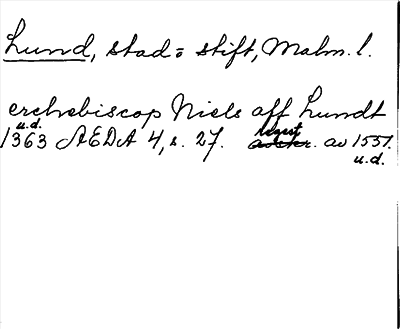 Lund, stad o stift, Malm. l.
erchebiscop Niels aff Lundt
u.d.
1363 ÆDA 4, s. 27. regest av 1551.
u.d.